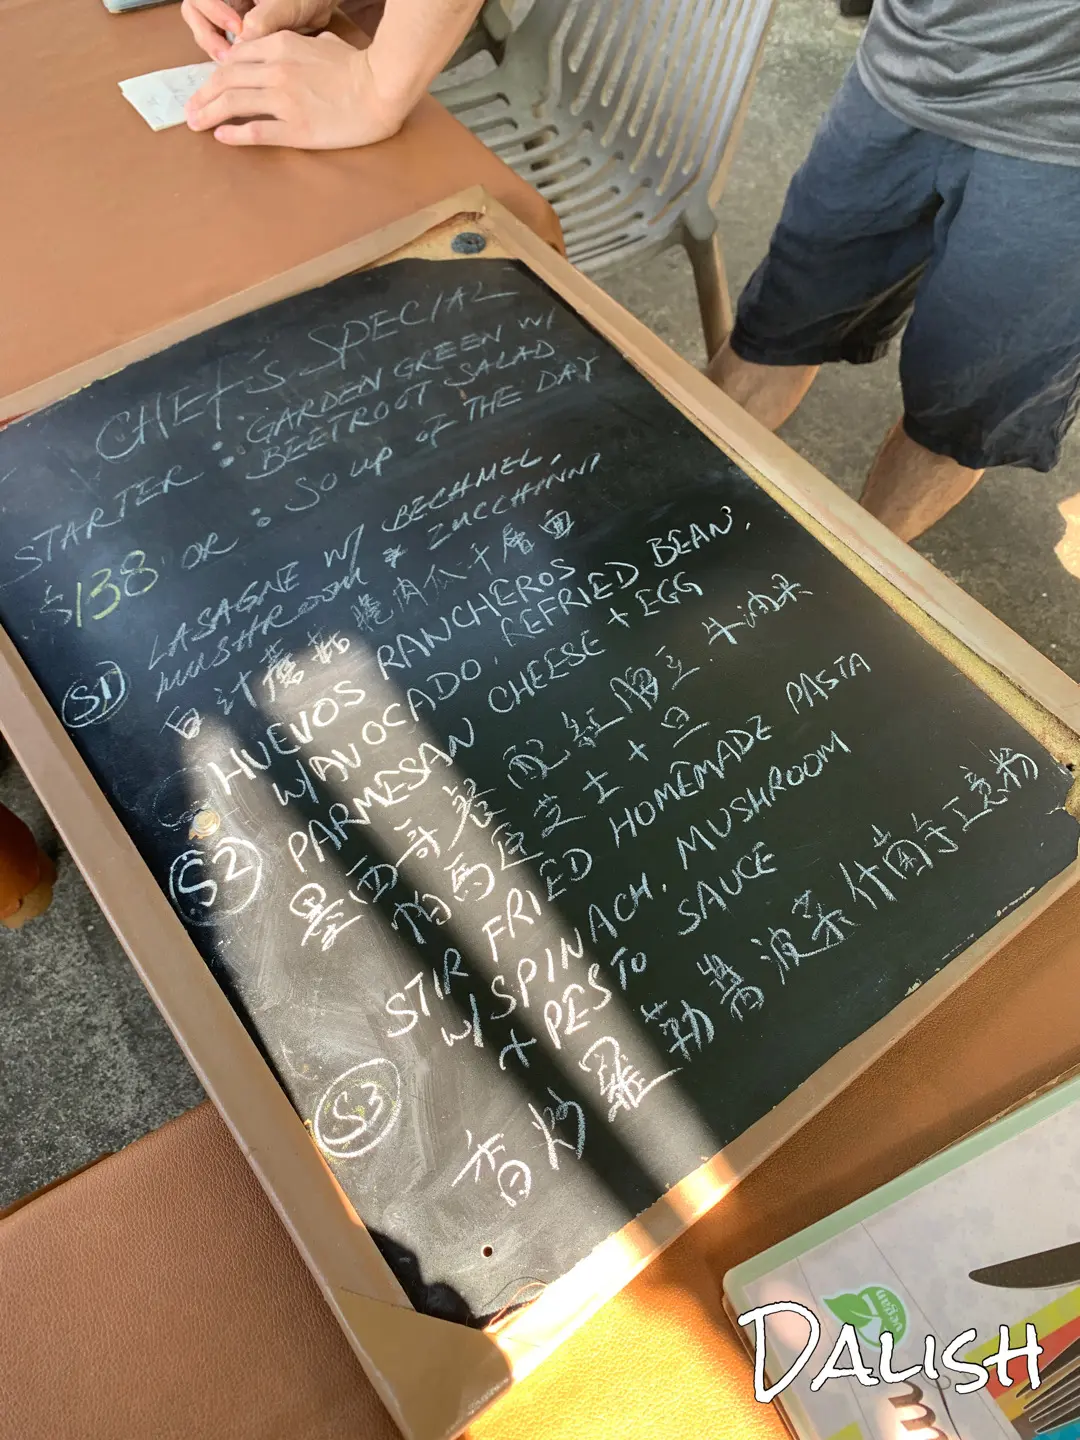 CHEF'S SPECIAL
STARTER : GARDEN GREEN W/
BEETROOT SALAD
OR : SOUP OF THE DAY
$138
S1
LASAGNE W/ BECHMEL,
MUSHROOM & ZUCCHINNI
白汁蘑菇瓜千層面
S2
HUEVOS RANCHEROS
W/ AVOCADO, REFRIED BEAN,
PARMESAN CHEESE + EGG
墨西哥餐 配紅腰豆, 牛油果
馬臣芝士 + 旦
S3
STIR FRIED HOMEMADE PASTA
W/ SPINACH, MUSHROOM
+ PESTO SAUCE
香炒羅勒醬波菜什菌手工意粉
vegan
DALISH